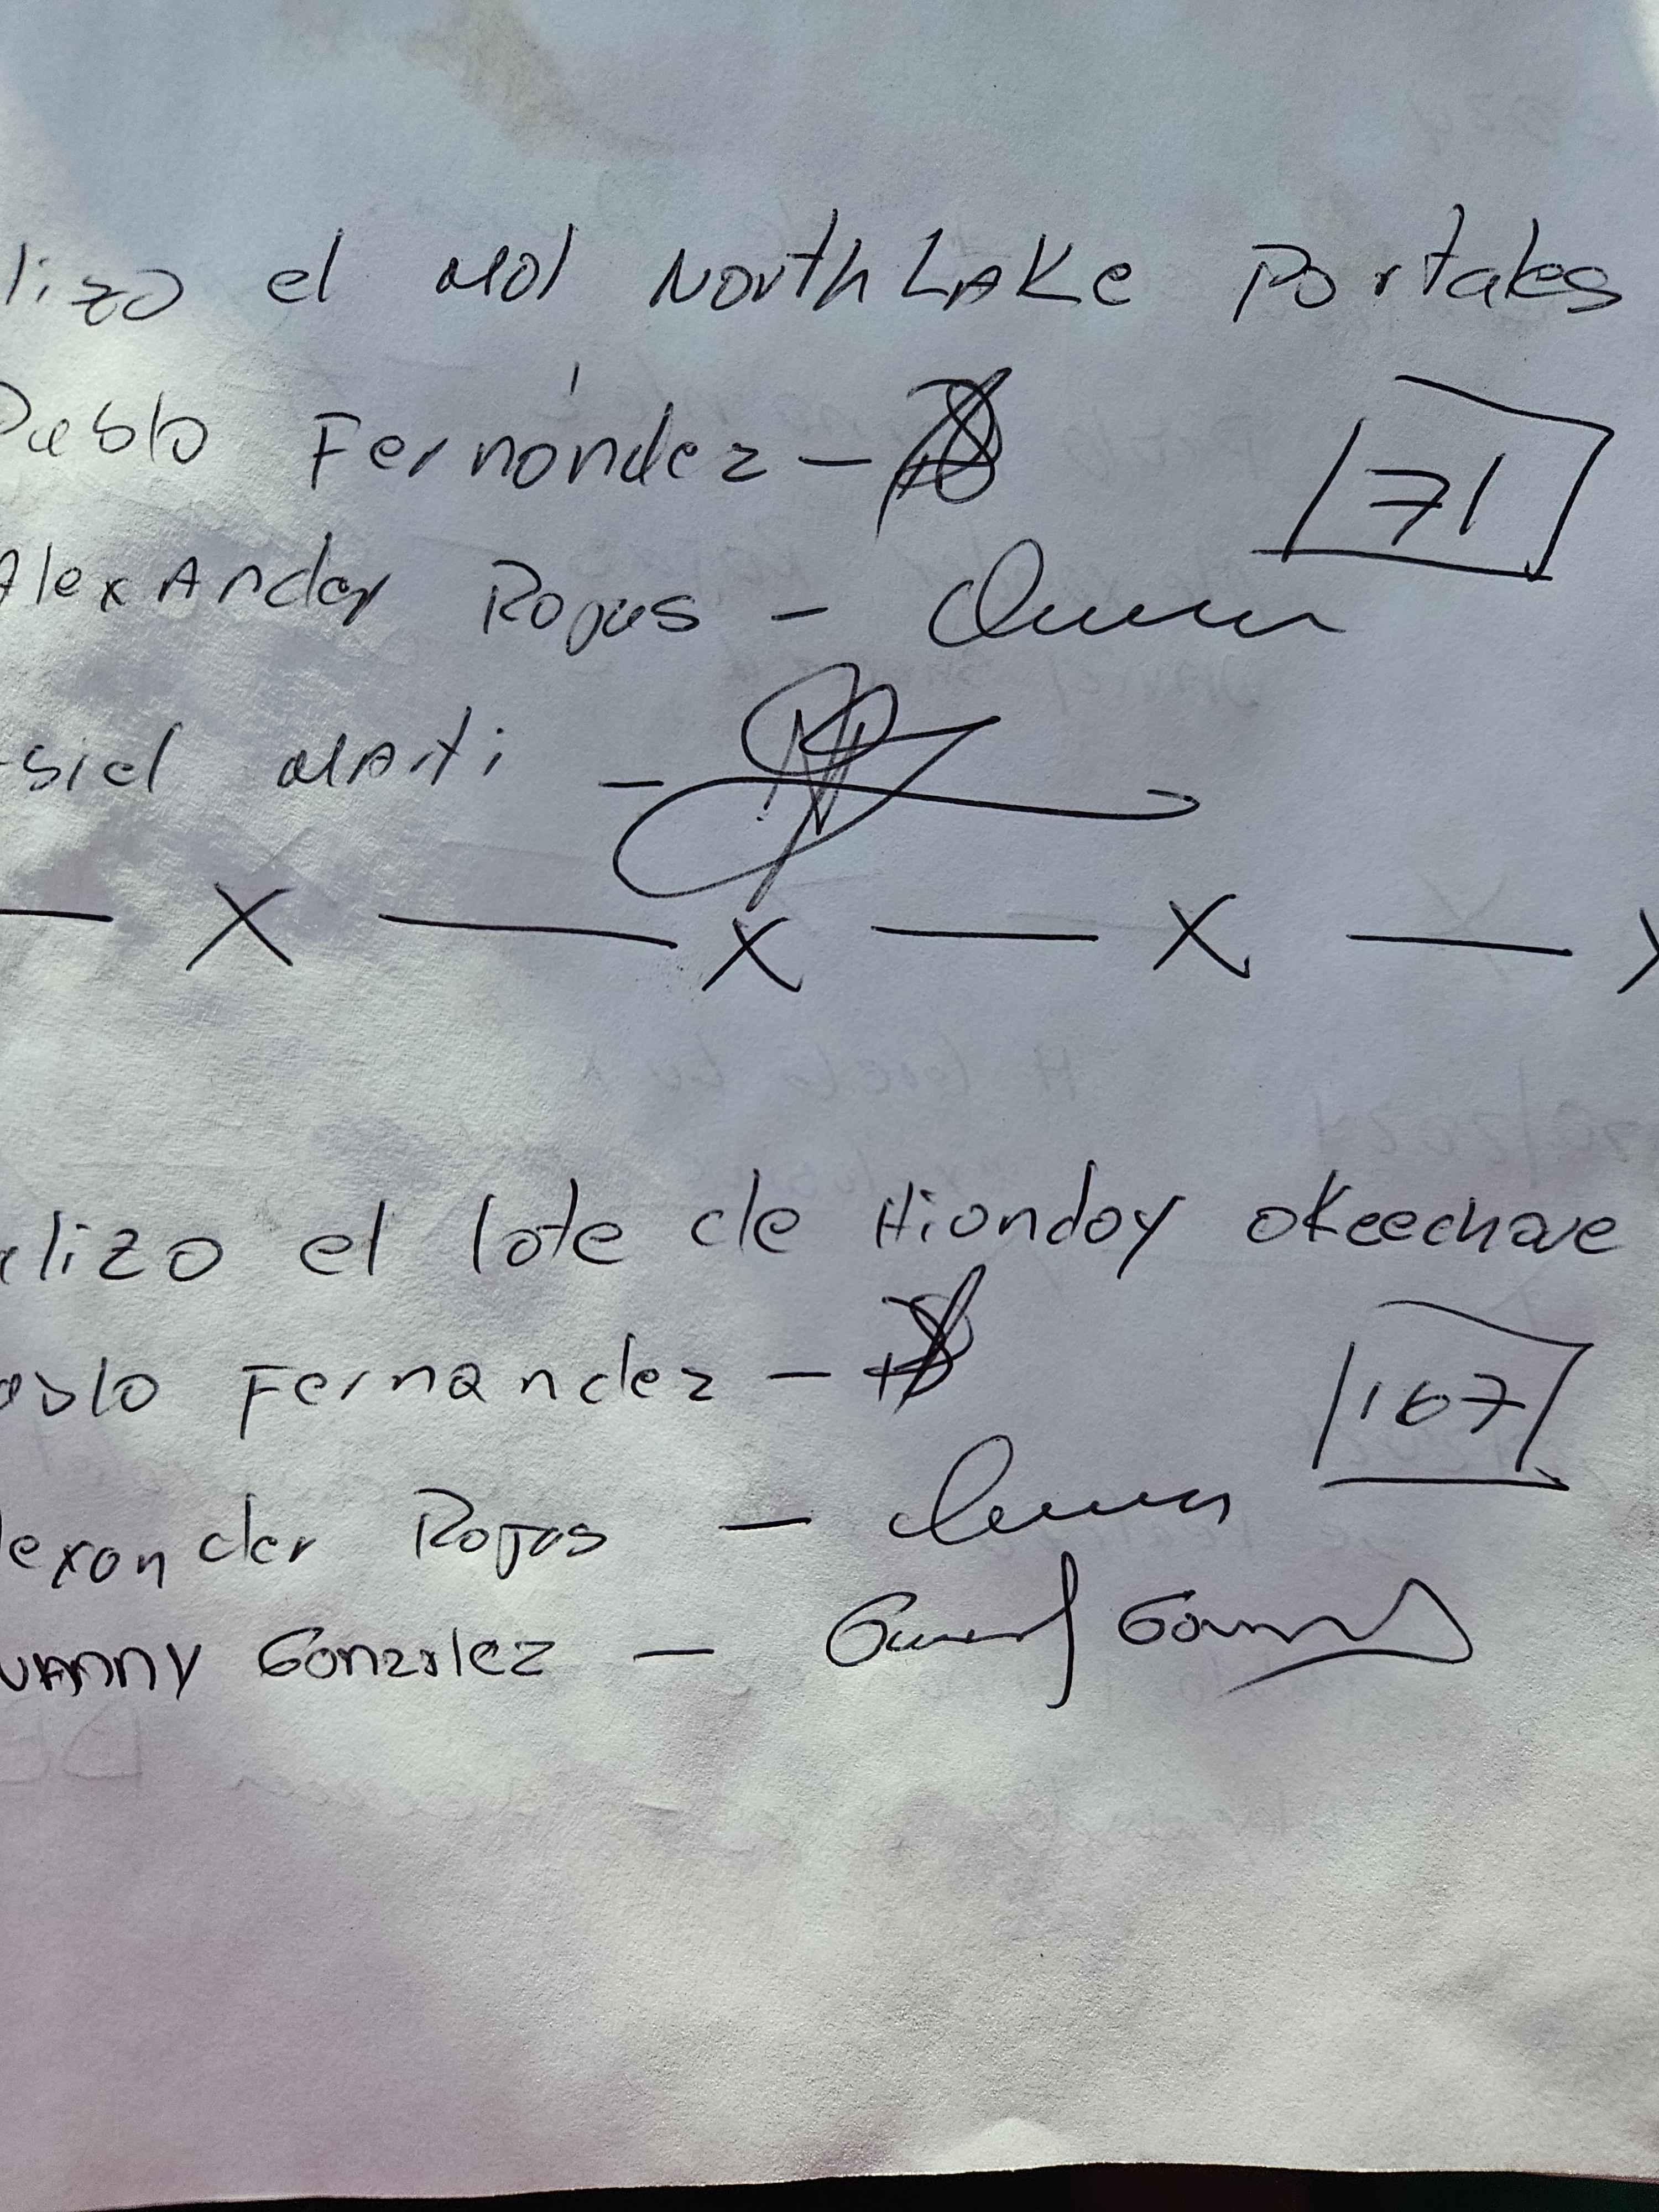 lizo el Mol North Lake Portales
Pablo Fernández -
71
Alexander Rojas -
siel Marti -
— X — X — X — X
lizo el lote de Hionday okeechove
ablo Fernandez -
167
lexander Rojas -
vanny Gonzalez -